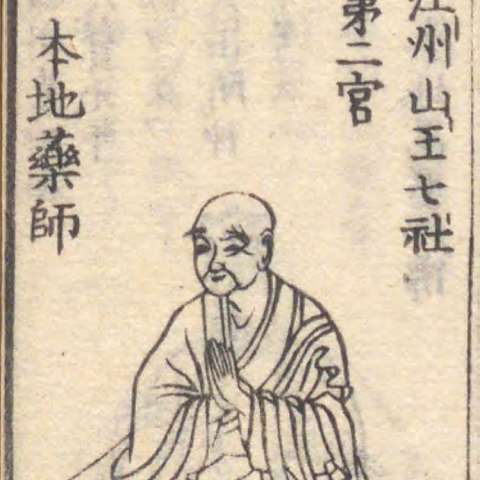 江州山王七社
第二宮
本地藥師